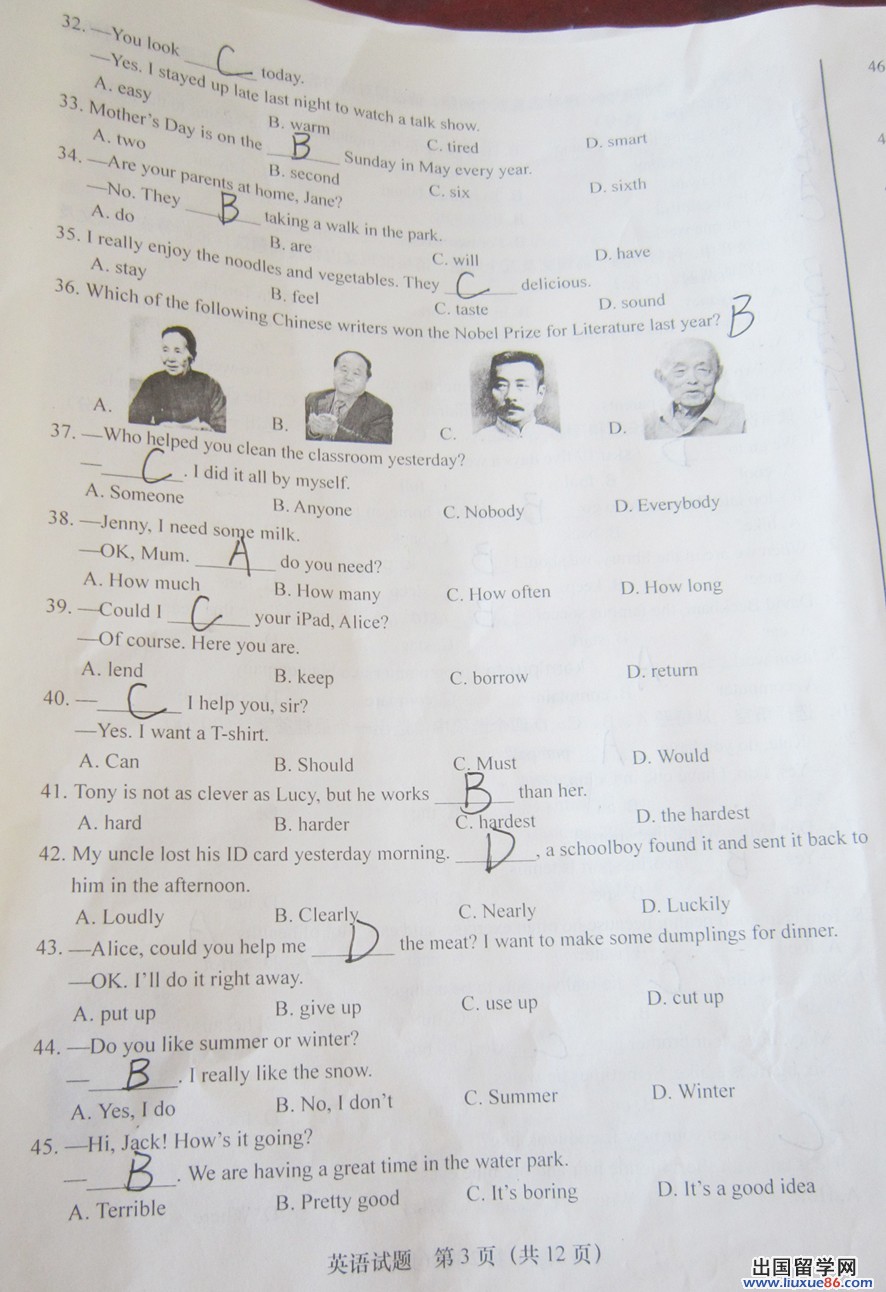 32. —You look C today.
—Yes. I stayed up late last night to watch a talk show.
A. easy B. warm C. tired D. smart
33. Mother's Day is on the B Sunday in May every year.
A. two B. second C. six D. sixth
34. —Are your parents at home, Jane?
—No. They B taking a walk in the park.
A. do B. are C. will D. have
35. I really enjoy the noodles and vegetables. They C delicious.
A. stay B. feel C. taste D. sound
36. Which of the following Chinese writers won the Nobel Prize for Literature last year? B
A. B. C. D.
37. —Who helped you clean the classroom yesterday?
— C . I did it all by myself.
A. Someone B. Anyone C. Nobody D. Everybody
38. —Jenny, I need some milk.
—OK, Mum. A do you need?
A. How much B. How many C. How often D. How long
39. —Could I C your iPad, Alice?
—Of course. Here you are.
A. lend B. keep C. borrow D. return
40. — C I help you, sir?
—Yes. I want a T-shirt.
A. Can B. Should C. Must D. Would
41. Tony is not as clever as Lucy, but he works B than her.
A. hard B. harder C. hardest D. the hardest
42. My uncle lost his ID card yesterday morning. D , a schoolboy found it and sent it back to
him in the afternoon.
A. Loudly B. Clearly C. Nearly D. Luckily
43. —Alice, could you help me D the meat? I want to make some dumplings for dinner.
—OK. I'll do it right away.
A. put up B. give up C. use up D. cut up
44. —Do you like summer or winter?
— B . I really like the snow.
A. Yes, I do B. No, I don't C. Summer D. Winter
45. —Hi, Jack! How's it going?
— B . We are having a great time in the water park.
A. Terrible B. Pretty good C. It's boring D. It's a good idea
英语试题 第 3 页（共 12 页）
46
4
出国留学网
www.liuxue86.com